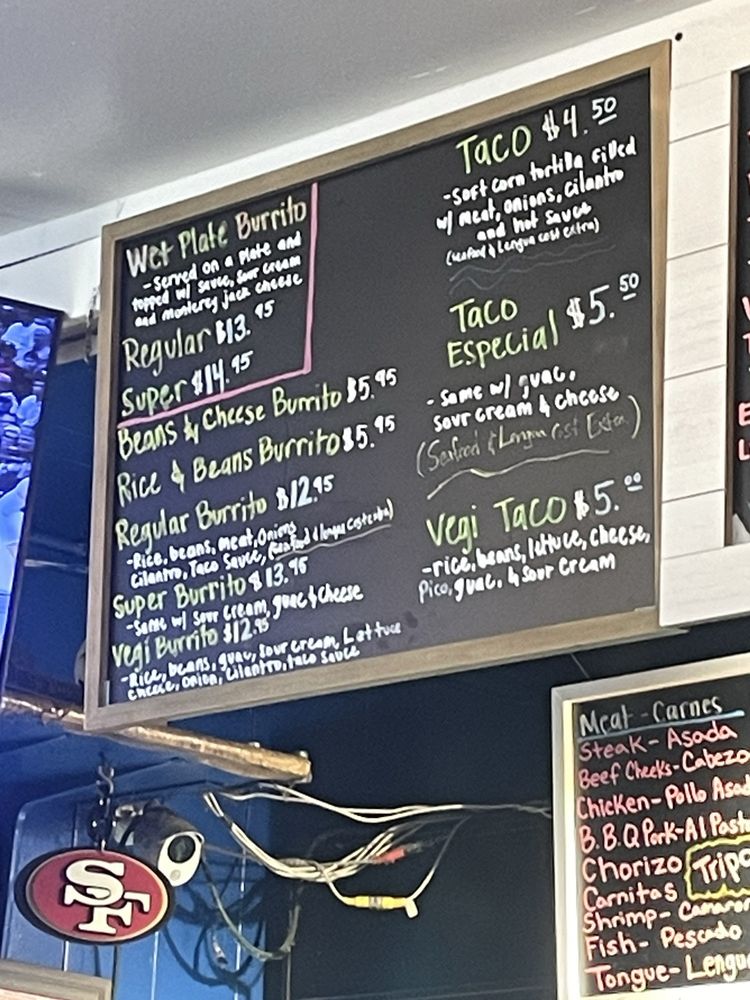 Wet Plate Burrito
- Served on a plate and
topped w/ sauce, sour cream
and monterey jack cheese
Regular $13.95
Super $14.95
Beans & Cheese Burrito $5.95
Rice & Beans Burrito $5.95
Regular Burrito $12.95
- Rice, beans, meat, Onions
Cilantro, Taco Sauce, (Seafood & lengua cost extra)
Super Burrito $13.95
- Same w/ Sour Cream, guac & Cheese
Vegi Burrito $12.95
- Rice, beans, guac, Sour cream, Lettuce
Cheese, Onion, Cilantro, taco sauce
Taco $4.50
- Soft corn tortilla filled
w/ meat, onions, cilantro
and hot sauce
(Seafood & Lengua cost extra)
Taco
Especial $5.50
- Same w/ guac,
sour cream & cheese
(Seafood & Lengua Cost Extra)
Vegi Taco $5.00
- rice, beans, lettuce, cheese,
Pico, guac, & Sour Cream
Meat - Carnes
Steak - Asada
Beef Cheeks - Cabeza
Chicken - Pollo Asad
B.B.Q Pork - Al Past
Chorizo
Trip
Carnitas
Shrimp - Camaron
Fish - Pescado
Tongue - Lengu
SF